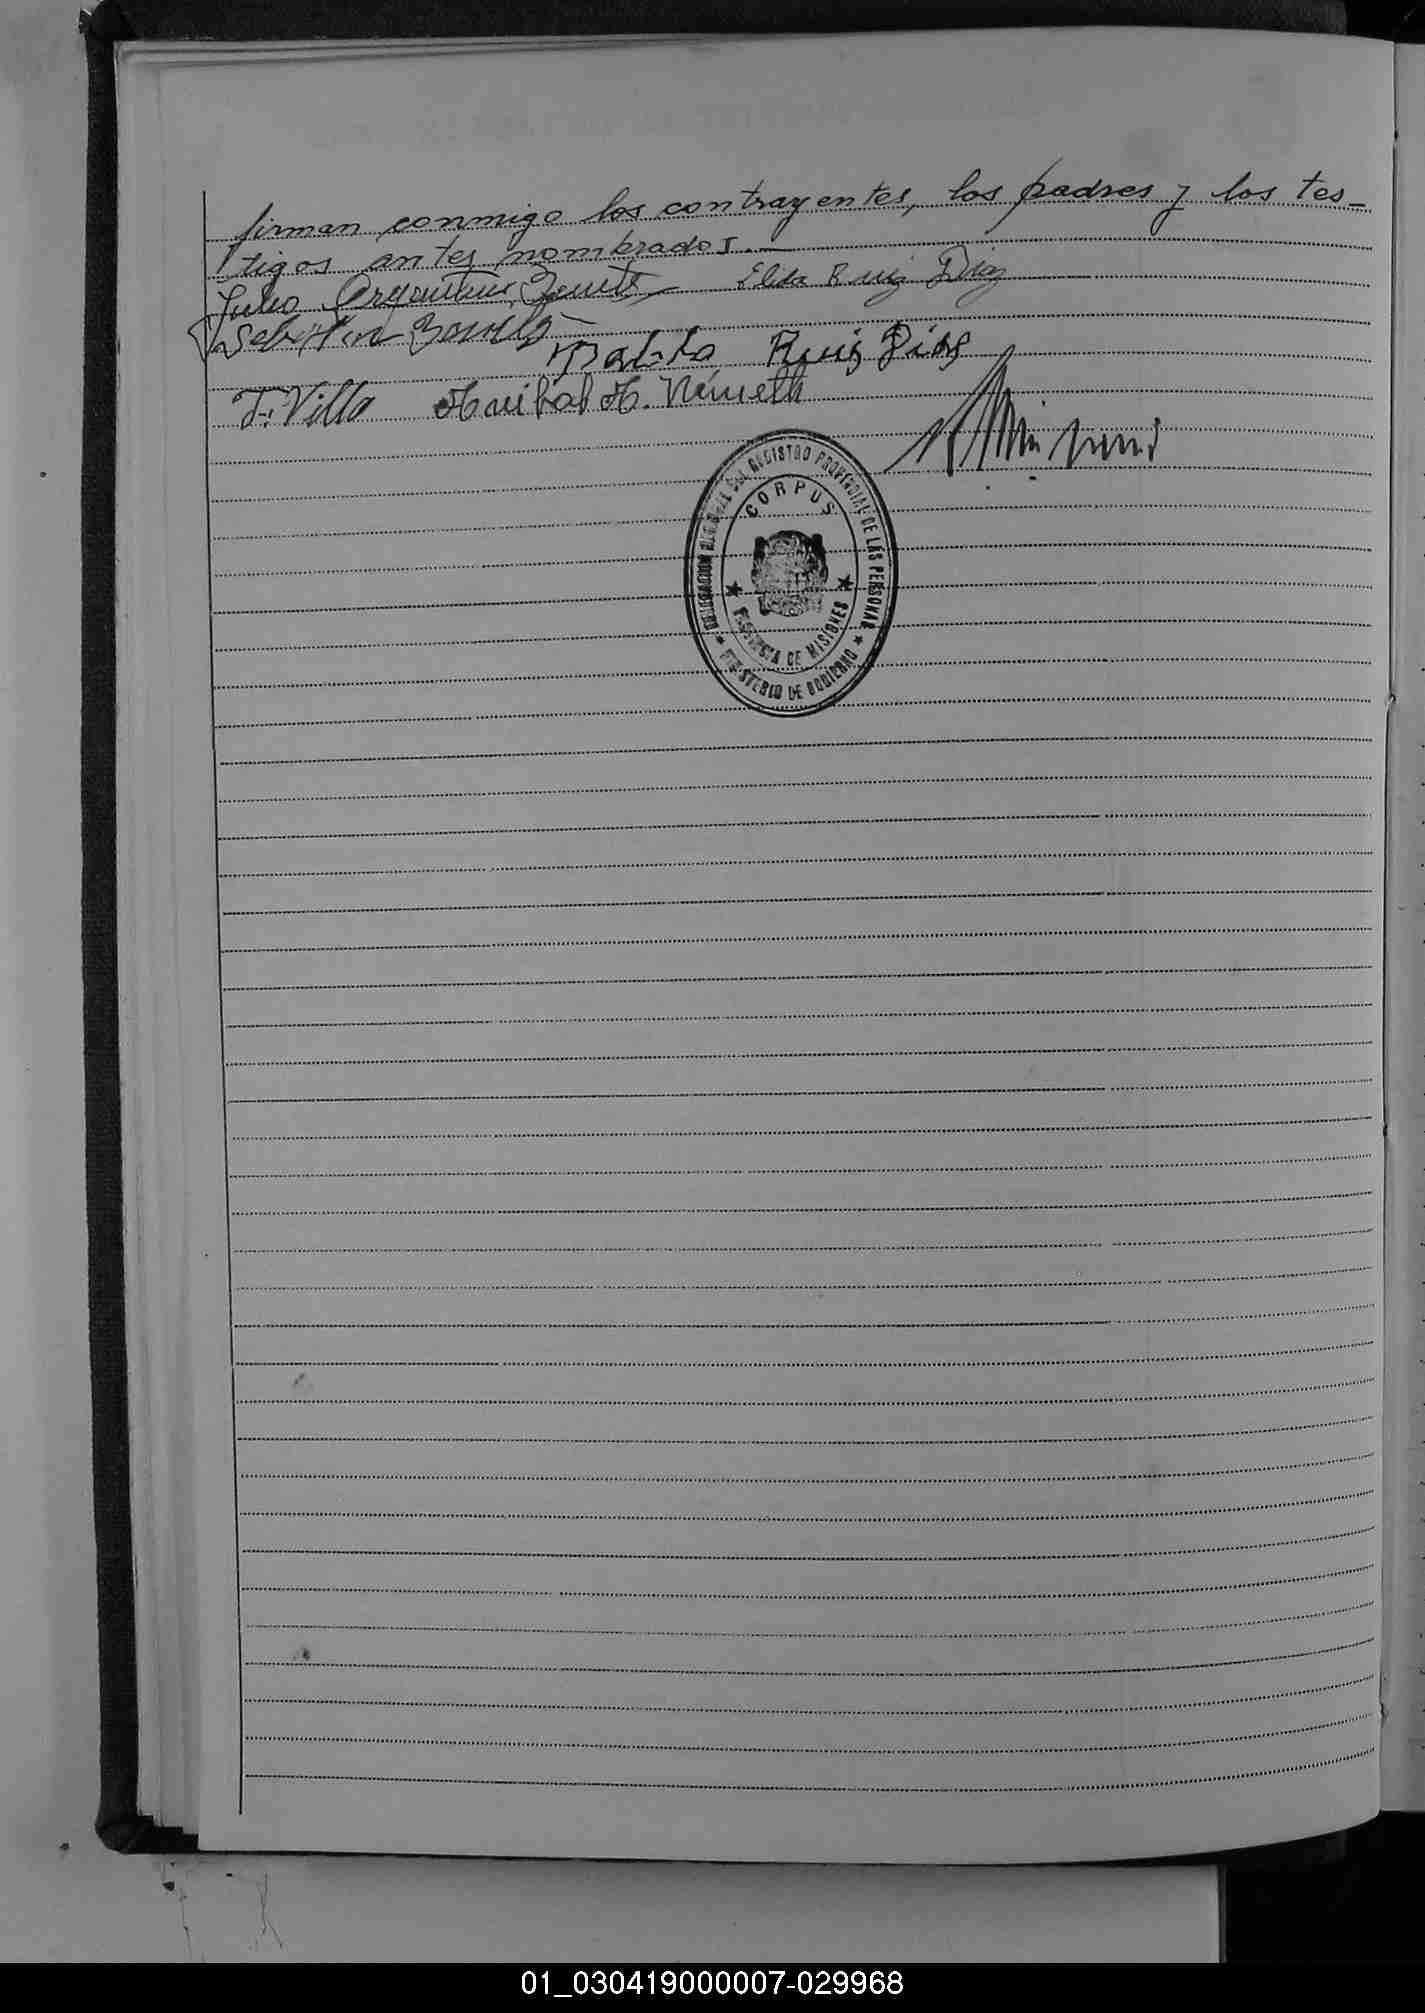 firman conmigo los contrayentes, los padres y los tes-
tigos antes nombrados.-
Julio Argentino Elida Ruiz Diaz
Ruiz Dias
F. Villa Anibal A. Nemeth
DELEGACION DEL REGISTRO PROVINCIAL DE LAS PERSONAS
CORPUS
PROVINCIA DE MISIONES
MINISTERIO DE GOBIERNO
01_030419000007-029968